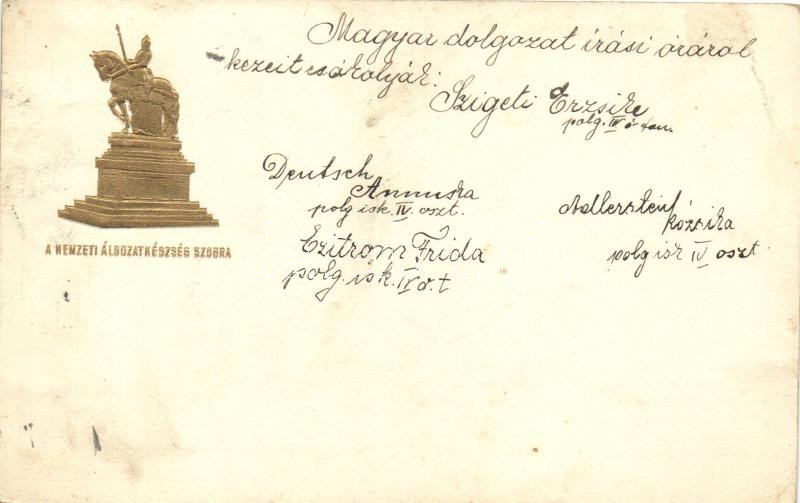 Magyar dolgozat írási óráról
kezeit csókolják:
Szigeti Erzsike
polg. IV o. tan.
Deutsch
Annuska
polg isk. IV. oszt.
Adlerstein
Rózsika
polg isk IV oszt
Czitrom Frida
polg. isk. IV o. t
A NEMZETI ÁLDOZATKÉSZSÉG SZOBRA